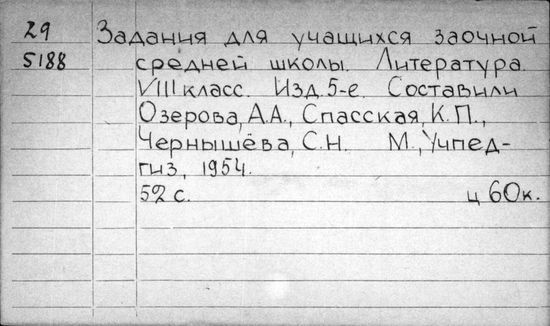 29 Задания для учащихся заочной
5188 средней школы. Литература.
VIII класс. Изд. 5-е. Составили
Озерова, А.А., Спасская, К.П.,
Чернышёва, С.Н. М., Учпед-
гиз, 1954.
52 с. ц 60к.